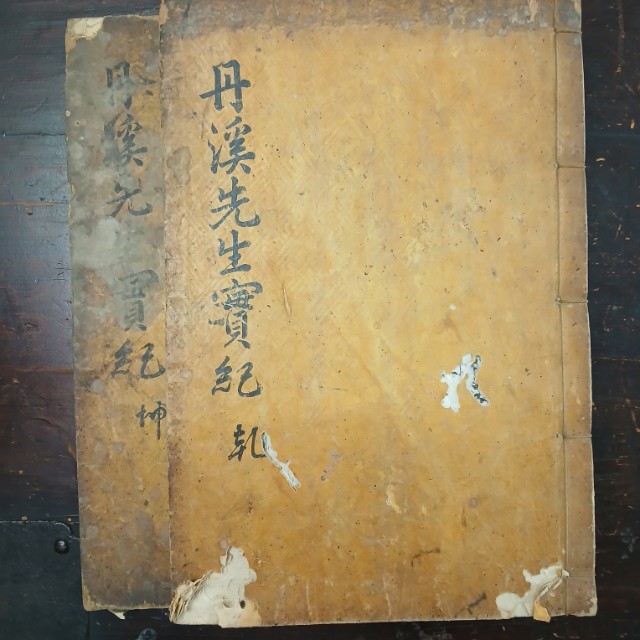 丹溪先生實紀 乾
丹溪先生實紀 坤